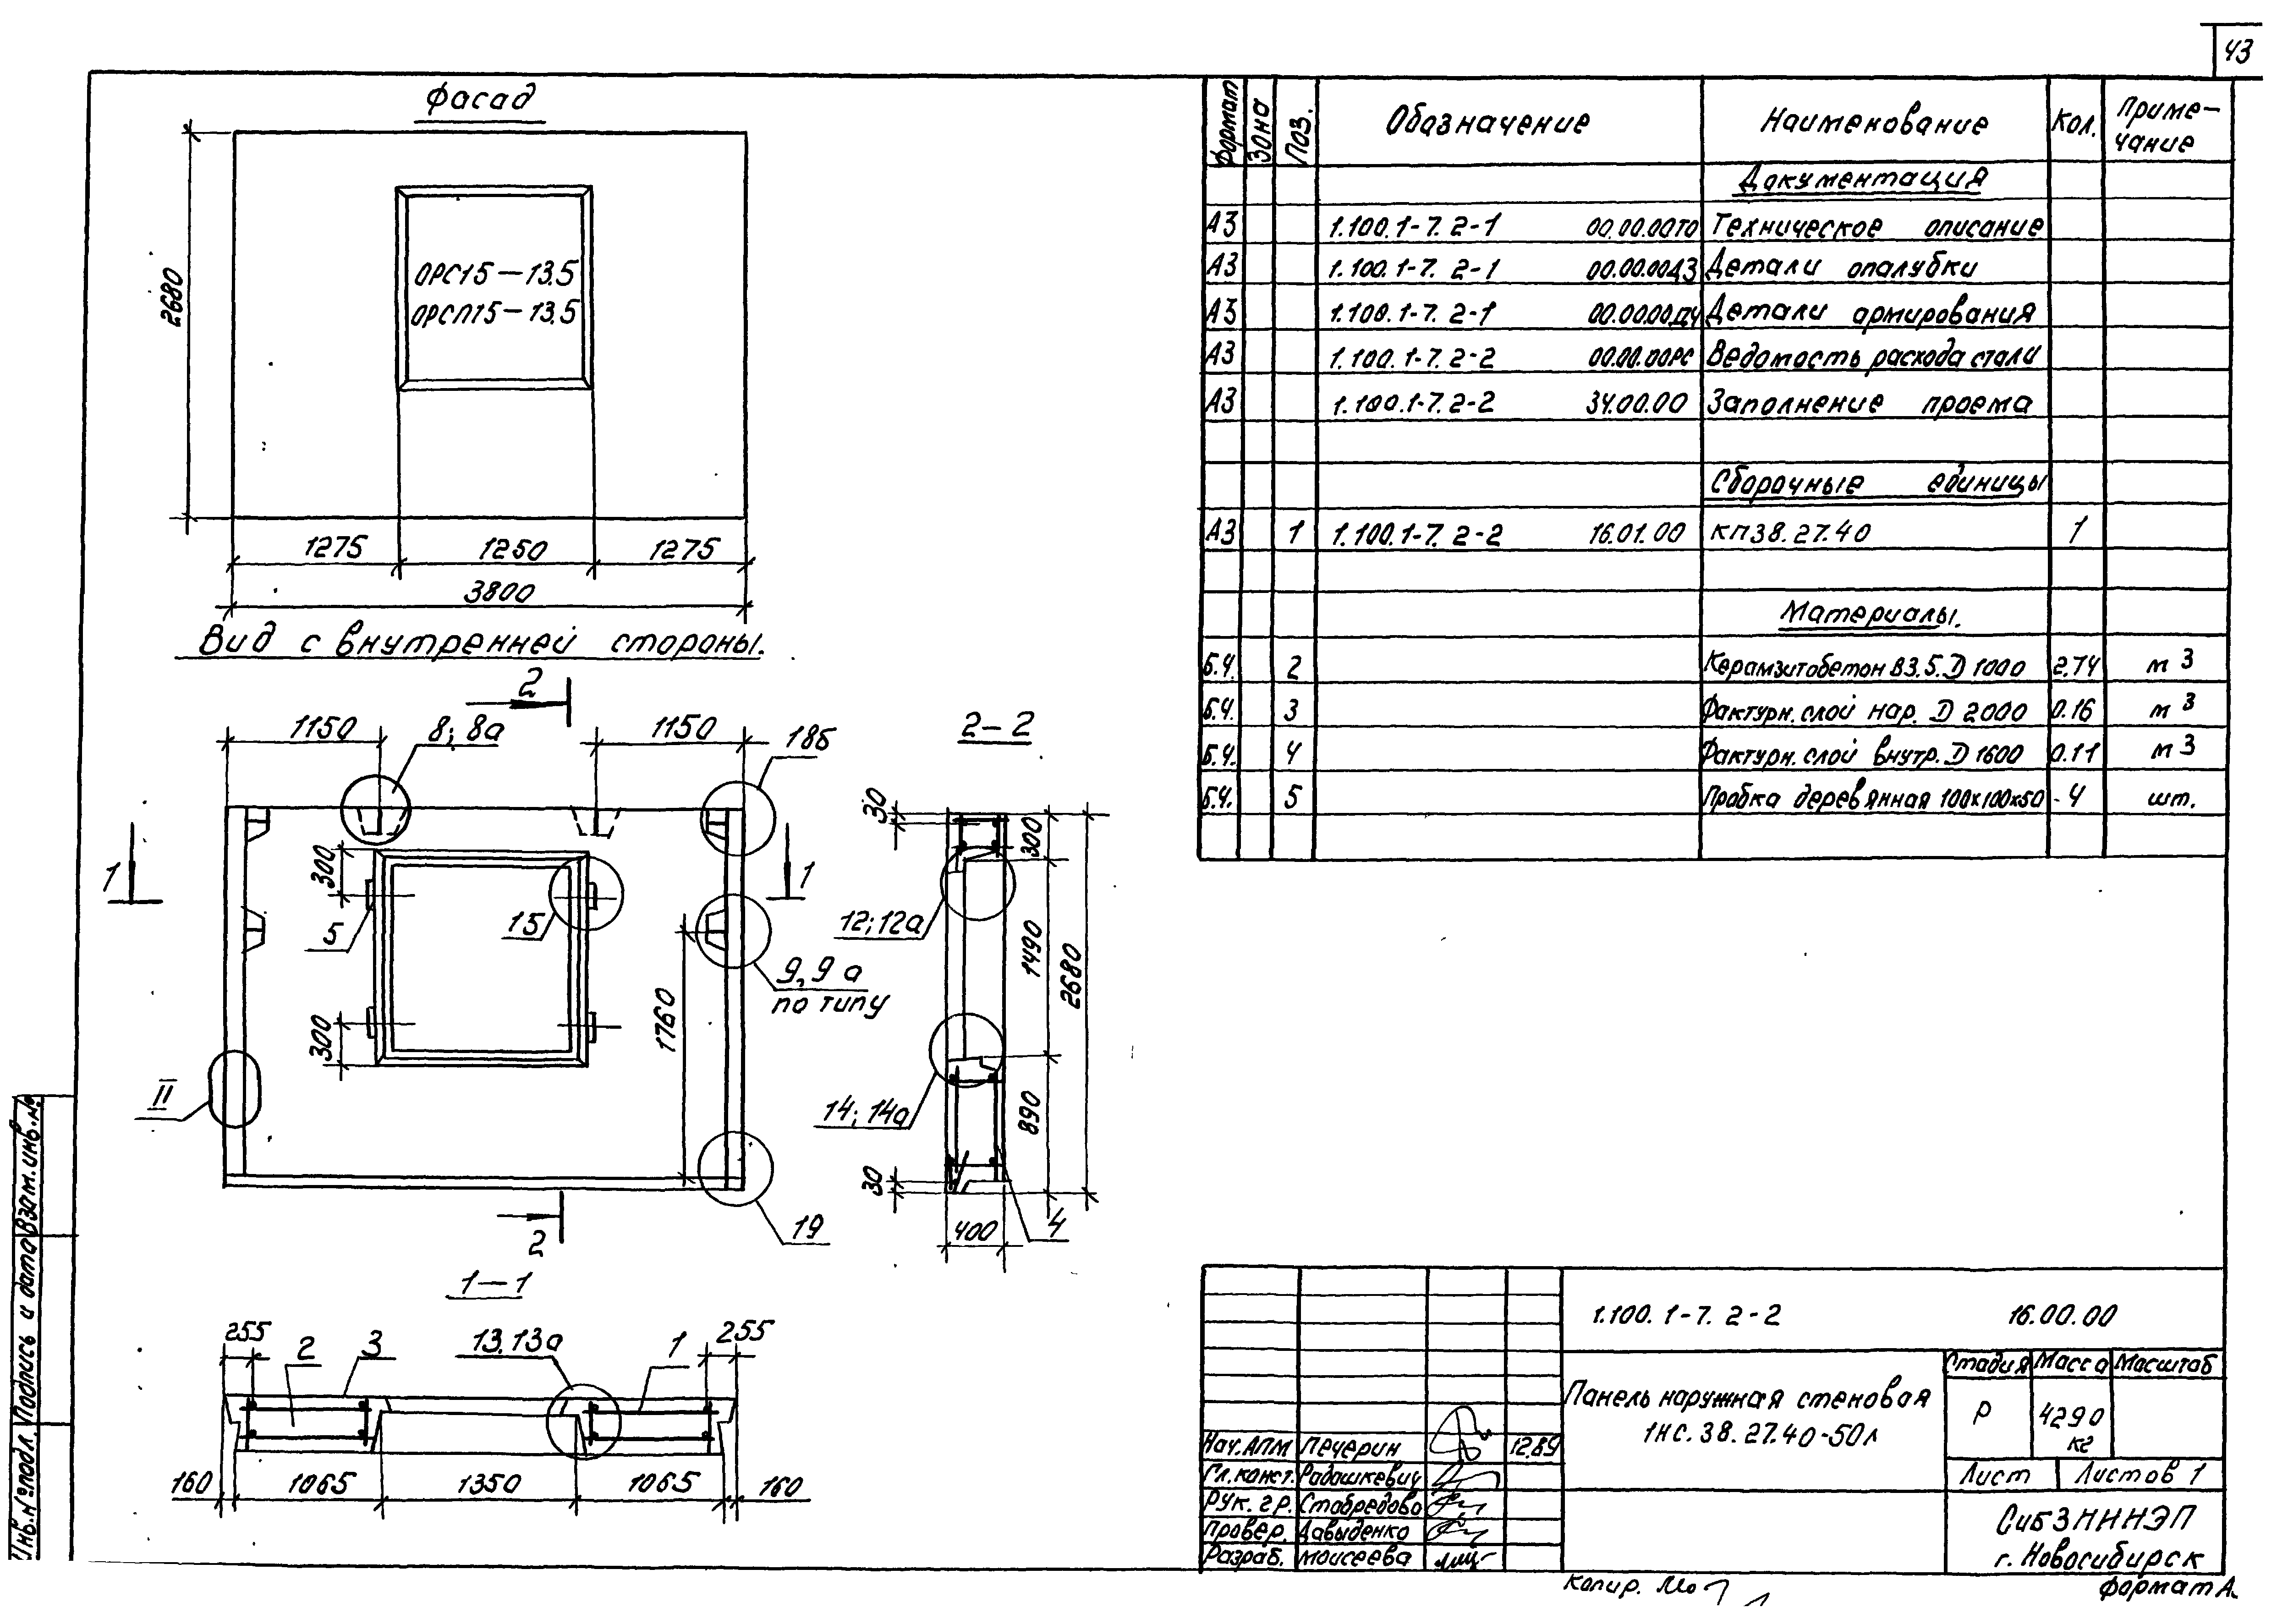 43
Фасад
2680
ОРС15-13.5
ОРСП15-13.5
1275 1250 1275
3800
Вид с внутренней стороны.
2
1150 8; 8а 1150 18б
1 1
300
5 15
9, 9а
по типу
300
1760
II
19
2
2-2
30
300
12; 12а
1490
2680
14; 14а
890
30
400
4
1-1
255 2 3 13, 13а 1 255
160 1065 1350 1065 160
Формат Зона Поз. Обозначение Наименование Кол. Приме-
чание
Документация
А3 1.100.1-7. 2-1 00.00.00ТО Техническое описание
А3 1.100.1-7. 2-1 00.00.00Д3 Детали опалубки
А3 1.100.1-7. 2-1 00.00.00Д4 Детали армирования
А3 1.100.1-7. 2-2 00.00.00РС Ведомость расхода стали
А3 1.100.1-7. 2-2 34.00.00 Заполнение проема
Сборочные единицы
А3 1 1.100.1-7. 2-2 16.01.00 КП38.27.40 1
Материалы.
Б.Ч. 2 Керамзитобетон В3.5. D 1000 2.74 м3
Б.Ч. 3 Фактурн. слой нар. D 2000 0.16 м3
Б.Ч. 4 Фактурн. слой внутр. D 1600 0.11 м3
Б.Ч. 5 Пробка деревянная 100х100х50 4 шт.
1.100. 1-7. 2-2 16.00.00
Панель наружная стеновая
1НС.38.27.40-50л
Стадия Масса Масштаб
Р 4290
кг
Лист Листов 1
Нач.АПМ Печерин 12.89
Гл.конст. Радашкевич
Рук. гр. Стабредова
Провер. Давыденко
Разраб. Моисеева
СибЗНИИЭП
г. Новосибирск
Копир.
Формат А
Инв.№подл. Подпись и дата Взам.инв.№